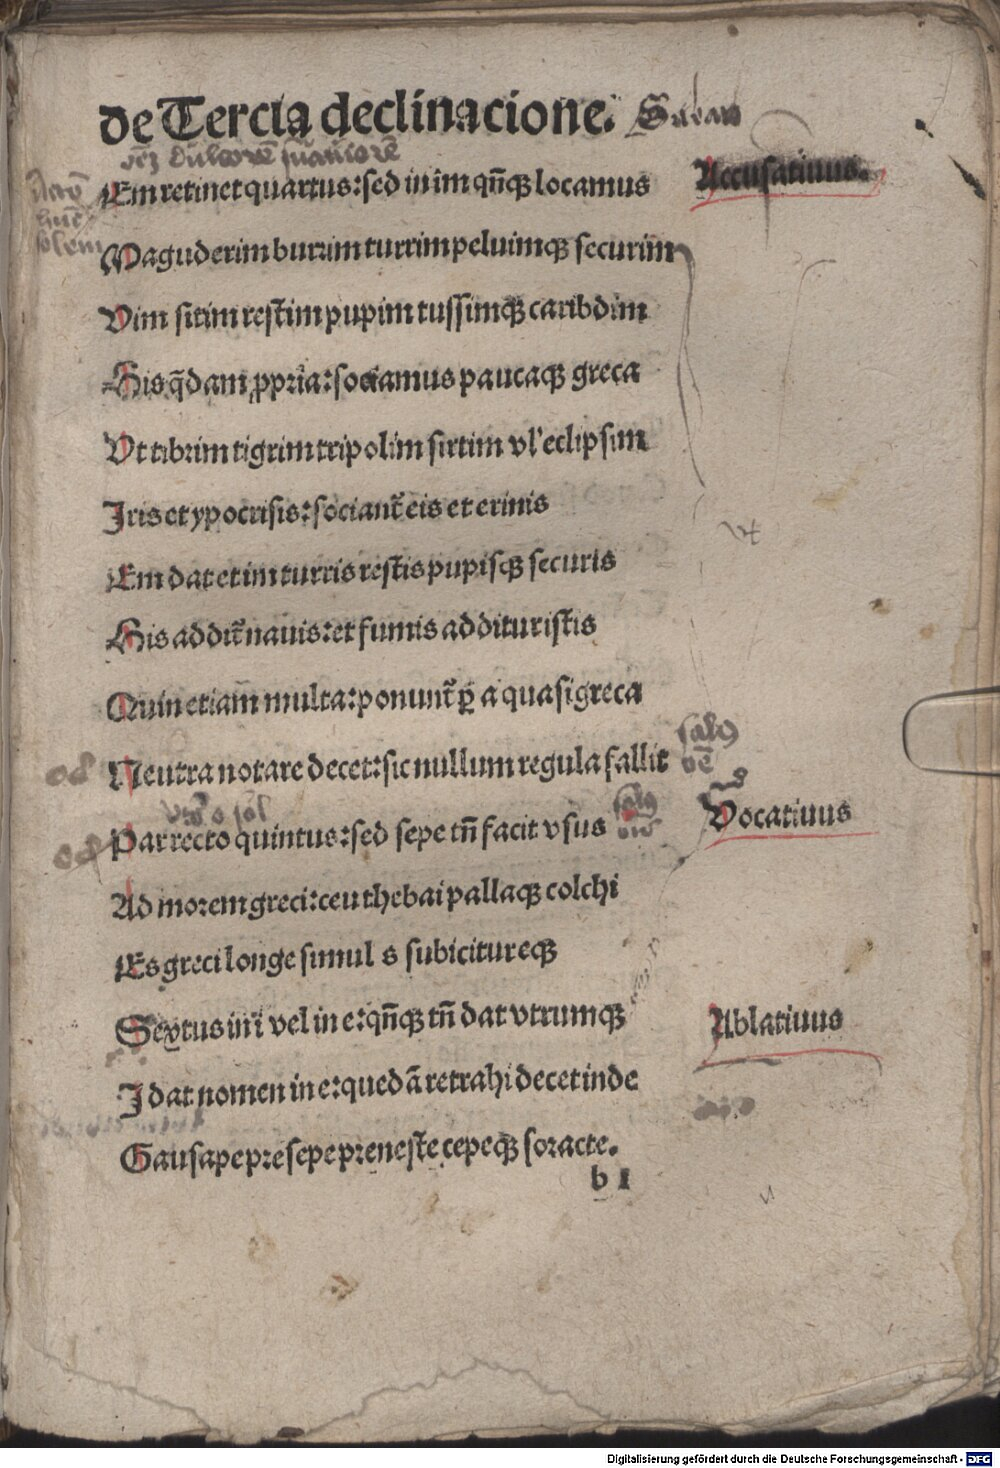 de Tercia declinacione.
Accusatiuus.
Em retinet quartus: sed in im qn̄qꝫ locamus
Maguderim burrim turrim peluimqꝫ securim
Vim sitim restim pupim tussimqꝫ caribdim
His q̄dam ꝓpria: sociamus paucaqꝫ greca
Vt tibrim tigrim tripolim sirtim vl' eclipsim
Iris et ypocrisis: sociant᷑ eis et erinis
Em dat et im turris restis pupisqꝫ securis
His addit᷑ nauis: et fumis additur istis
Quin etiam multa: ponunt᷑ ꝑ a quasi greca
Neutra notare decet: sic nullum regula fallit
Par recto quintus: sed sepe tn̄ facit vsus
Vocatiuus
Ad morem greci: ceu thebai pallaqꝫ colchi
Es greci longe simul s subicitur eqꝫ
Sextus in i vel in e: qn̄qꝫ tn̄ dat vtrumqꝫ
Ablatiuus
I dat nomen in e: quedā retrahi decet inde
Gausape presepe preneste cepeqꝫ soracte.
b 1
Digitalisierung gefördert durch die Deutsche Forschungsgemeinschaft - DFG